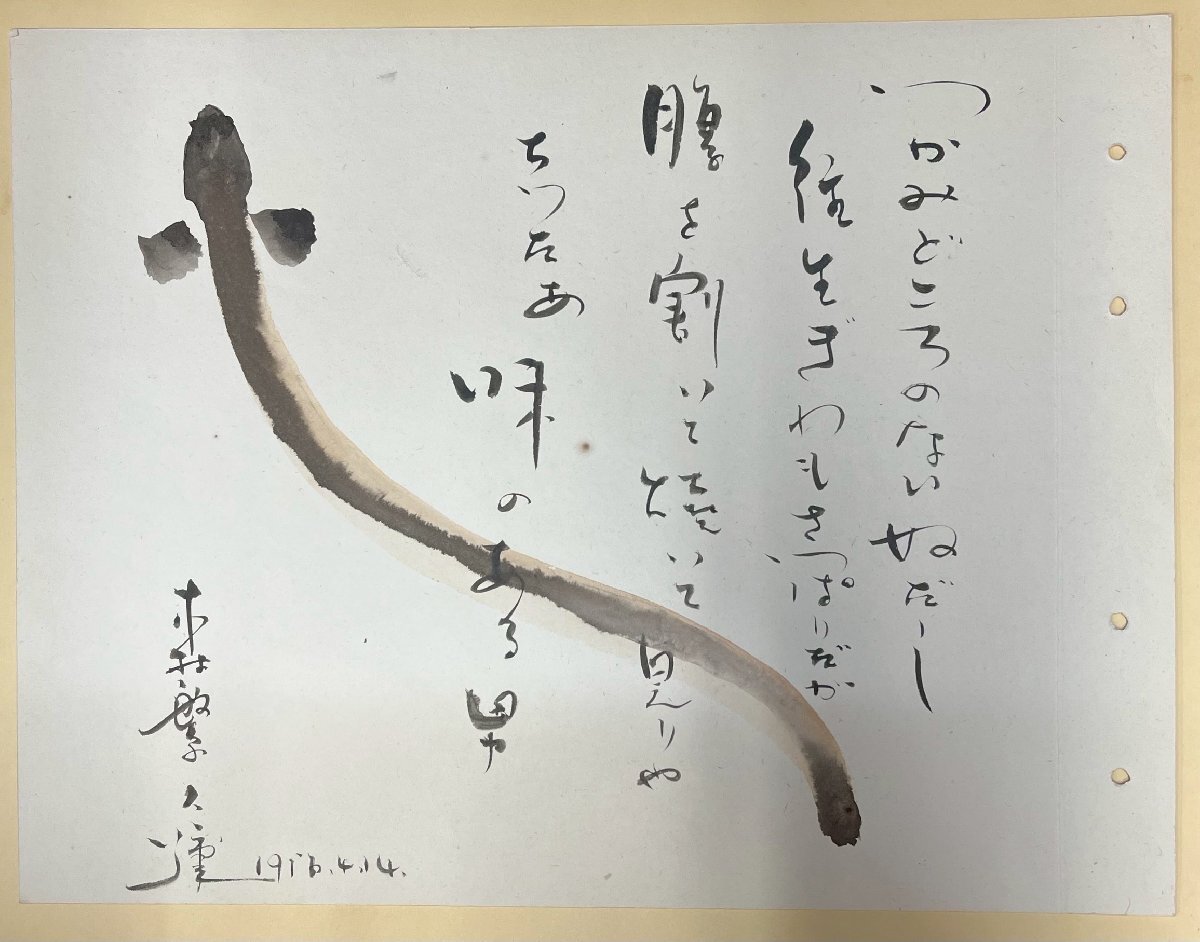 つかみどころのない奴だーし
往生ぎわもさっぱりだが
腹を割いて焼いて見りや
ちつたあ味のある男
木村繁
1956.4.14.